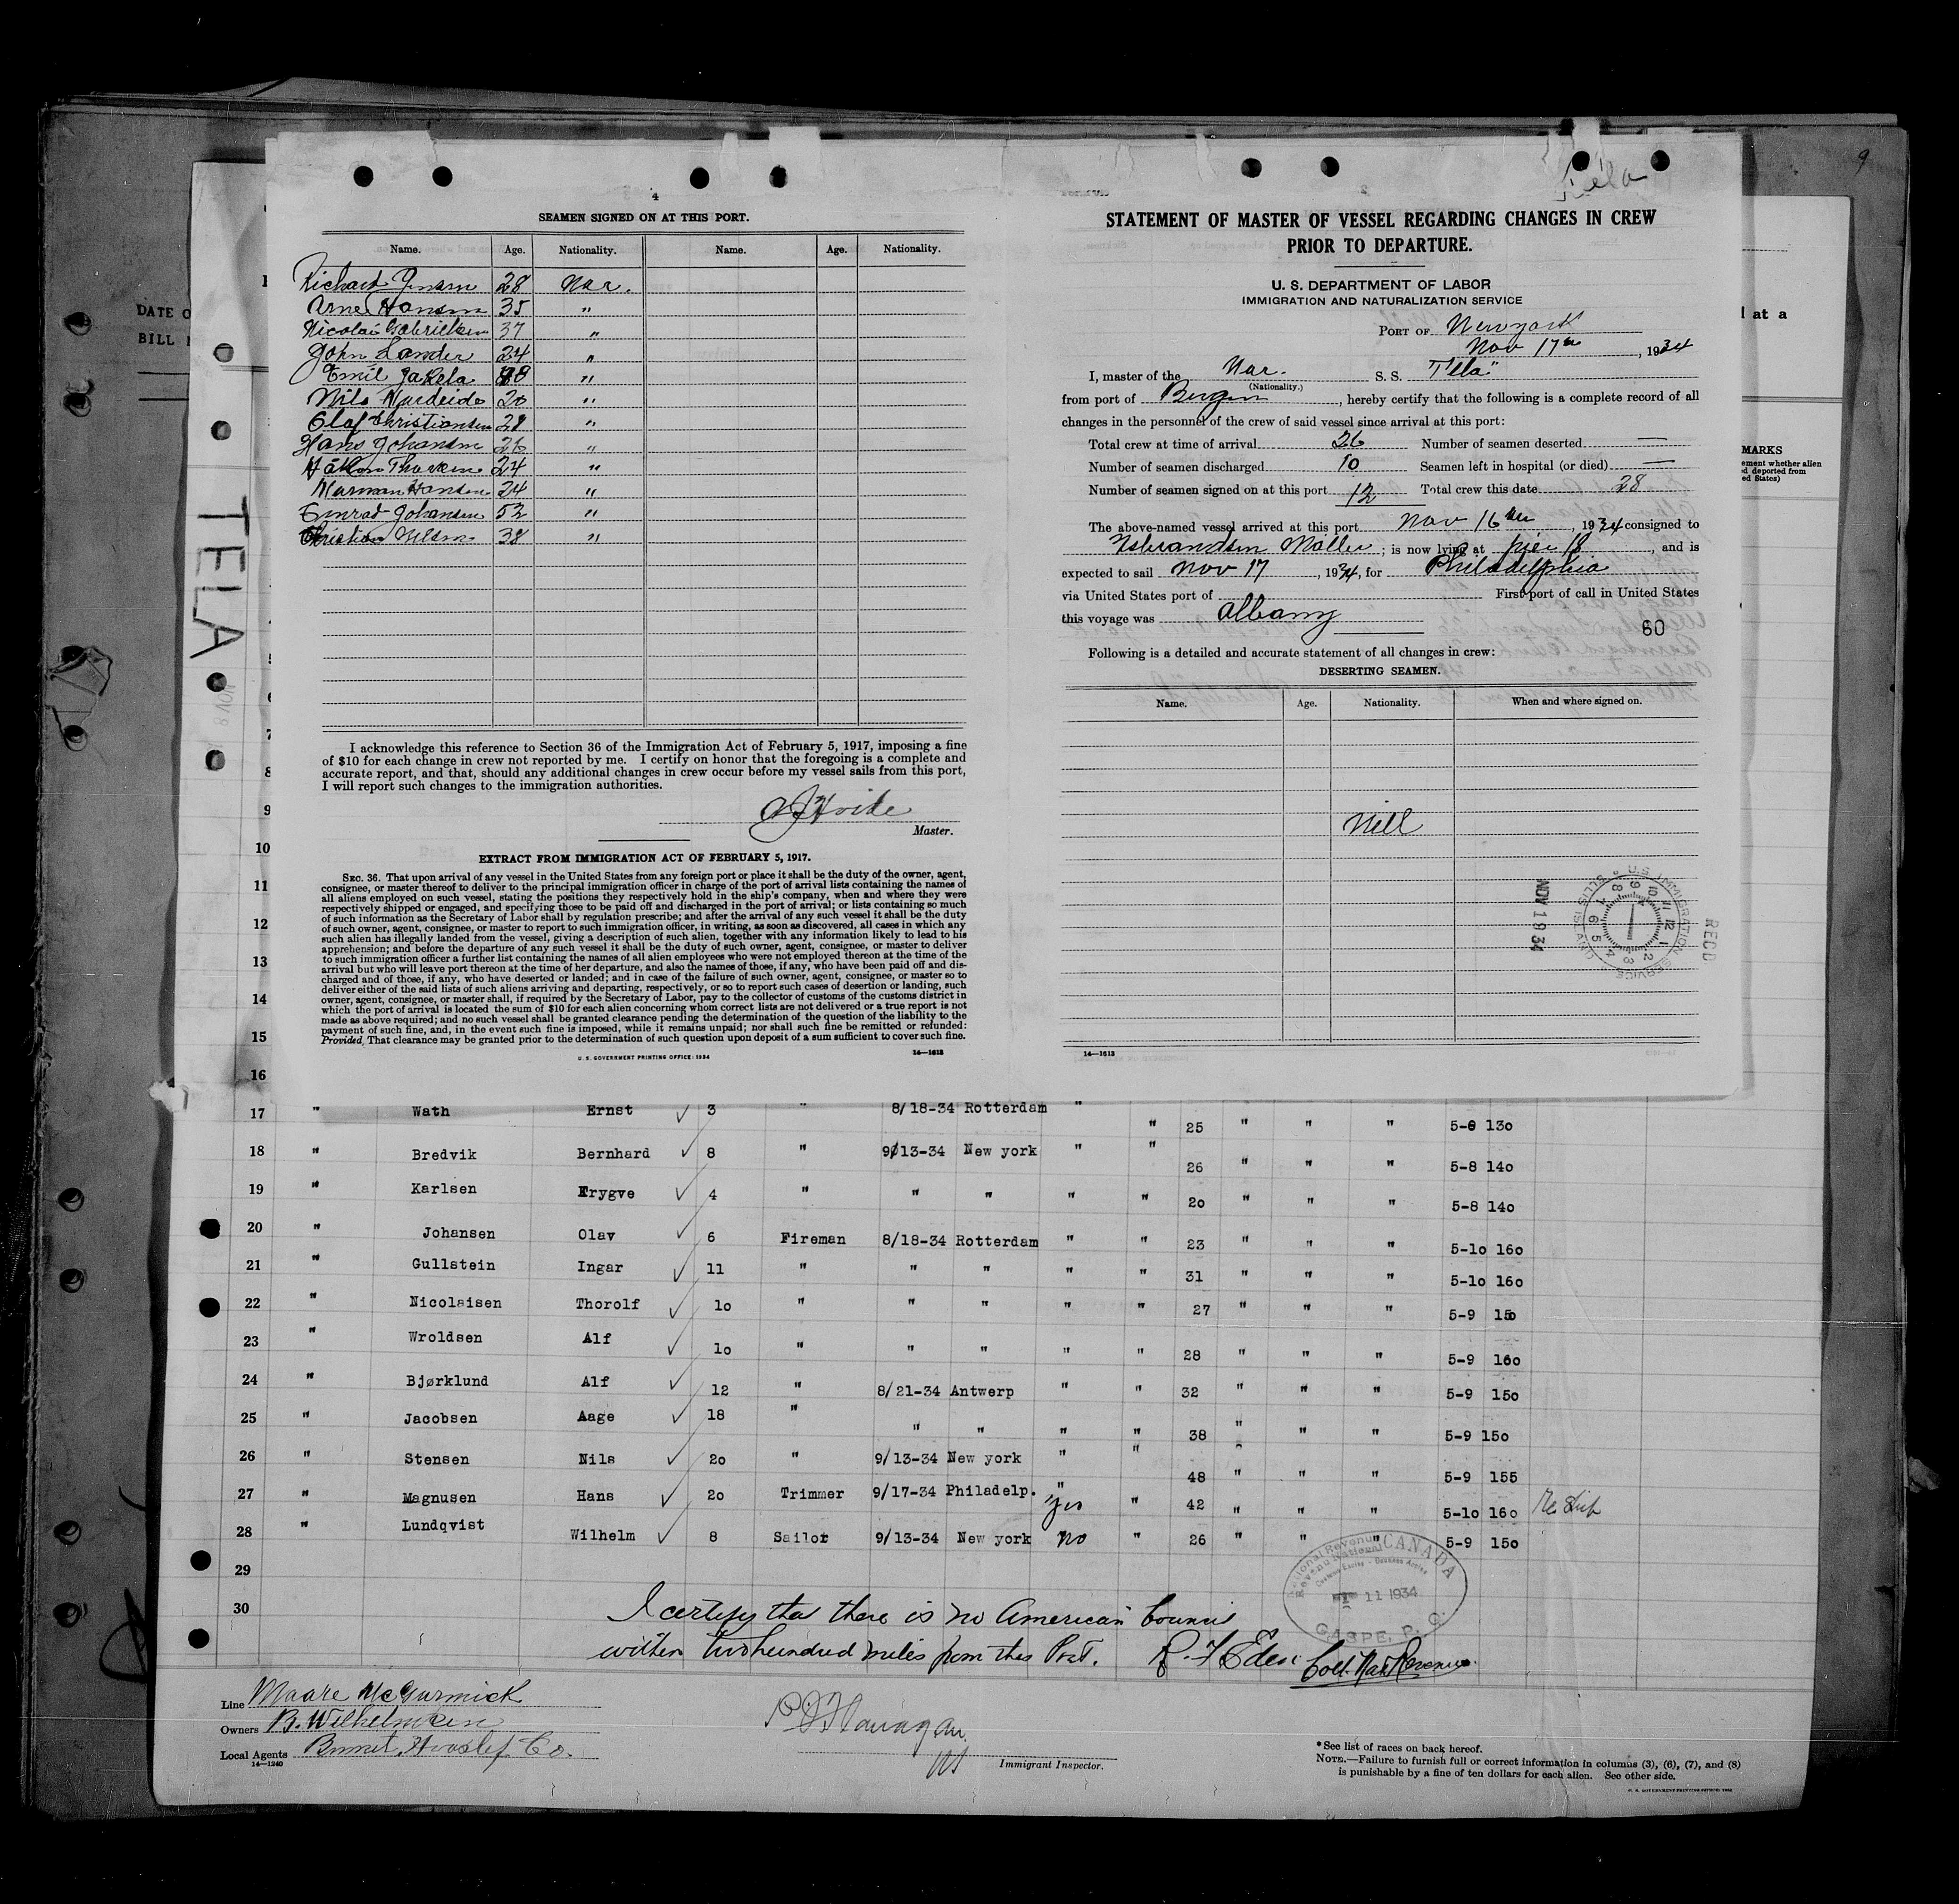 9
TELA
DATE O
BILL
d at a
MARKS
ement whether alien
ed deported from
ed States)
4
SEAMEN SIGNED ON AT THIS PORT.
Name. Age. Nationality. Name. Age. Nationality.
Richard Jensen 28 Nor.
Arne Hansen 35 "
Nicolai Gabrielsen 37 "
John Sander 24 "
Emil Jakela "
Nils Hardeide 20 "
Olaf Christiansen 28 "
Hans Johansen 26 "
Håkon 24 "
Norman Hansen 24 "
Johansen 52 "
Christian Nilsen 38 "
I acknowledge this reference to Section 36 of the Immigration Act of February 5, 1917, imposing a fine
of $10 for each change in crew not reported by me. I certify on honor that the foregoing is a complete and
accurate report, and that, should any additional changes in crew occur before my vessel sails from this port,
I will report such changes to the immigration authorities.
Master.
EXTRACT FROM IMMIGRATION ACT OF FEBRUARY 5, 1917.
SEC. 36. That upon arrival of any vessel in the United States from any foreign port or place it shall be the duty of the owner, agent,
consignee, or master thereof to deliver to the principal immigration officer in charge of the port of arrival lists containing the names of
all aliens employed on such vessel, stating the positions they respectively hold in the ship's company, when and where they were
respectively shipped or engaged, and specifying those to be paid off and discharged in the port of arrival; or lists containing so much
of such information as the Secretary of Labor shall by regulation prescribe; and after the arrival of any such vessel it shall be the duty
of such owner, agent, consignee, or master to report to such immigration officer, in writing, as soon as discovered, all cases in which any
such alien has illegally landed from the vessel, giving a description of such alien, together with any information likely to lead to his
apprehension; and before the departure of any such vessel it shall be the duty of such owner, agent, consignee, or master to deliver
to such immigration officer a further list containing the names of all alien employees who were not employed thereon at the time of the
arrival but who will leave port thereon at the time of her departure, and also the names of those, if any, who have been paid off and dis-
charged and of those, if any, who have deserted or landed; and in case of the failure of such owner, agent, consignee, or master so to
deliver either of the said lists of such aliens arriving and departing, respectively, or so to report such cases of desertion or landing, such
owner, agent, consignee, or master shall, if required by the Secretary of Labor, pay to the collector of customs of the customs district in
which the port of arrival is located the sum of $10 for each alien concerning whom correct lists are not delivered or a true report is not
made as above required; and no such vessel shall be granted clearance pending the determination of the question of the liability to the
payment of such fine, and, in the event such fine is imposed, while it remains unpaid; nor shall such fine be remitted or refunded:
Provided, That clearance may be granted prior to the determination of such question upon deposit of a sum sufficient to cover such fine.
U. S. GOVERNMENT PRINTING OFFICE: 1934 14—1613
Tela
STATEMENT OF MASTER OF VESSEL REGARDING CHANGES IN CREW
PRIOR TO DEPARTURE.
U. S. DEPARTMENT OF LABOR
IMMIGRATION AND NATURALIZATION SERVICE
PORT OF New york
Nov 17th, 1934
I, master of the Nor. S. S. "Tela"
(Nationality.)
from port of Bergen, hereby certify that the following is a complete record of all
changes in the personnel of the crew of said vessel since arrival at this port:
Total crew at time of arrival 26 Number of seamen deserted —
Number of seamen discharged 10 Seamen left in hospital (or died) —
Number of seamen signed on at this port 12 Total crew this date 28
The above-named vessel arrived at this port Nov 16th, 1934 consigned to
Isbrandtsen Möller; is now lying at pier 18, and is
expected to sail Nov 17, 1934, for Philadelphia
via United States port of First port of call in United States
this voyage was Albany
60
Following is a detailed and accurate statement of all changes in crew:
DESERTING SEAMEN.
Name. Age. Nationality. When and where signed on.
Nill
U.S. IMMIGRATION SERVICE ELLIS ISLAND
NOV 19 34
REC'D
14—1613
8
9
10
11
12
13
14
15
16
17 " Wath Ernst ✓ 3 " 8/18-34 Rotterdam " " 25 " " " 5-8 130
18 " Bredvik Bernhard ✓ 8 " 9/13-34 New york " " 26 " " " 5-8 140
19 " Karlsen Trygve ✓ 4 " " " " " 20 " " " 5-8 140
20 " Johansen Olav ✓ 6 Fireman 8/18-34 Rotterdam " " 23 " " " 5-10 160
21 " Gullstein Ingar ✓ 11 " " " " " 31 " " " 5-10 160
22 " Nicolaisen Thorolf ✓ 10 " " " " " 27 " " " 5-9 150
23 " Wroldsen Alf ✓ 10 " " " " " 28 " " " 5-9 160
24 " Bjørklund Alf ✓ 12 " 8/21-34 Antwerp " " 32 " " " 5-9 150
25 " Jacobsen Aage ✓ 18 " " " " " 38 " " " 5-9 150
26 " Stensen Nils ✓ 20 " 9/13-34 New york " " 48 " " " 5-9 155
27 " Magnusen Hans ✓ 20 Trimmer 9/17-34 Philadelp. " Yes " 42 " " " 5-10 160 Re Ship
28 " Lundqvist Wilhelm ✓ 8 Sailor 9/13-34 New york no " 26 " " " 5-9 150
29
30
National Revenue CANADA
Revenu National
11 1934
GASPE, P. Q.
I certify tha there is no American Council
within two hundred miles from this Port. R. F. Eden Coll. Nat. Revenue.
Line Moore McCormick
Owners B. Wilhelmsen
Local Agents Co.
14—1240
Immigrant Inspector.
*See list of races on back hereof.
NOTE.—Failure to furnish full or correct information in columns (3), (6), (7), and (8)
is punishable by a fine of ten dollars for each alien. See other side.